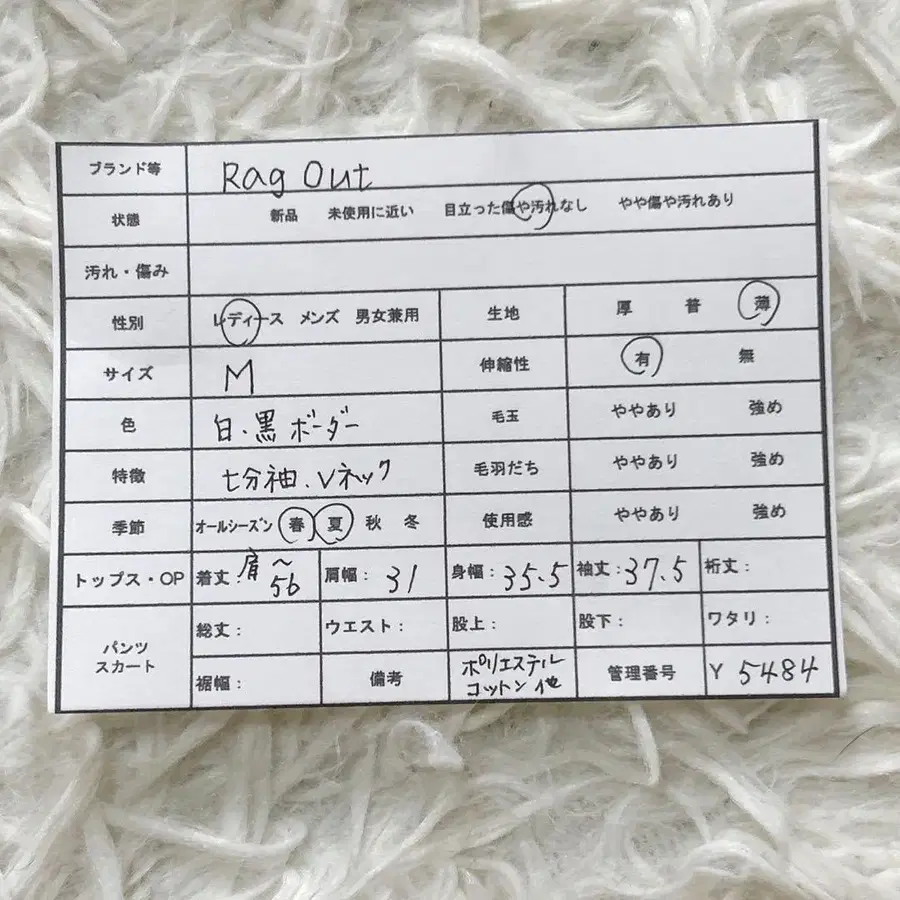 ブランド等 Rag Out
状態 新品 未使用に近い 目立った傷や汚れなし やや傷や汚れあり
汚れ・傷み
性別 レディース メンズ 男女兼用 生地 厚 普 薄
サイズ M 伸縮性 有 無
色 白、黒 ボーダー 毛玉 ややあり 強め
特徴 七分袖、Vネック 毛羽だち ややあり 強め
季節 オールシーズン 春 夏 秋 冬 使用感 ややあり 強め
トップス・OP 着丈: 肩〜56 肩幅: 31 身幅: 35.5 袖丈: 37.5 裄丈:
パンツ
スカート
総丈: ウエスト: 股上: 股下: ワタリ:
裾幅: 備考 ポリエステル
コットン 他
管理番号 Y 5484